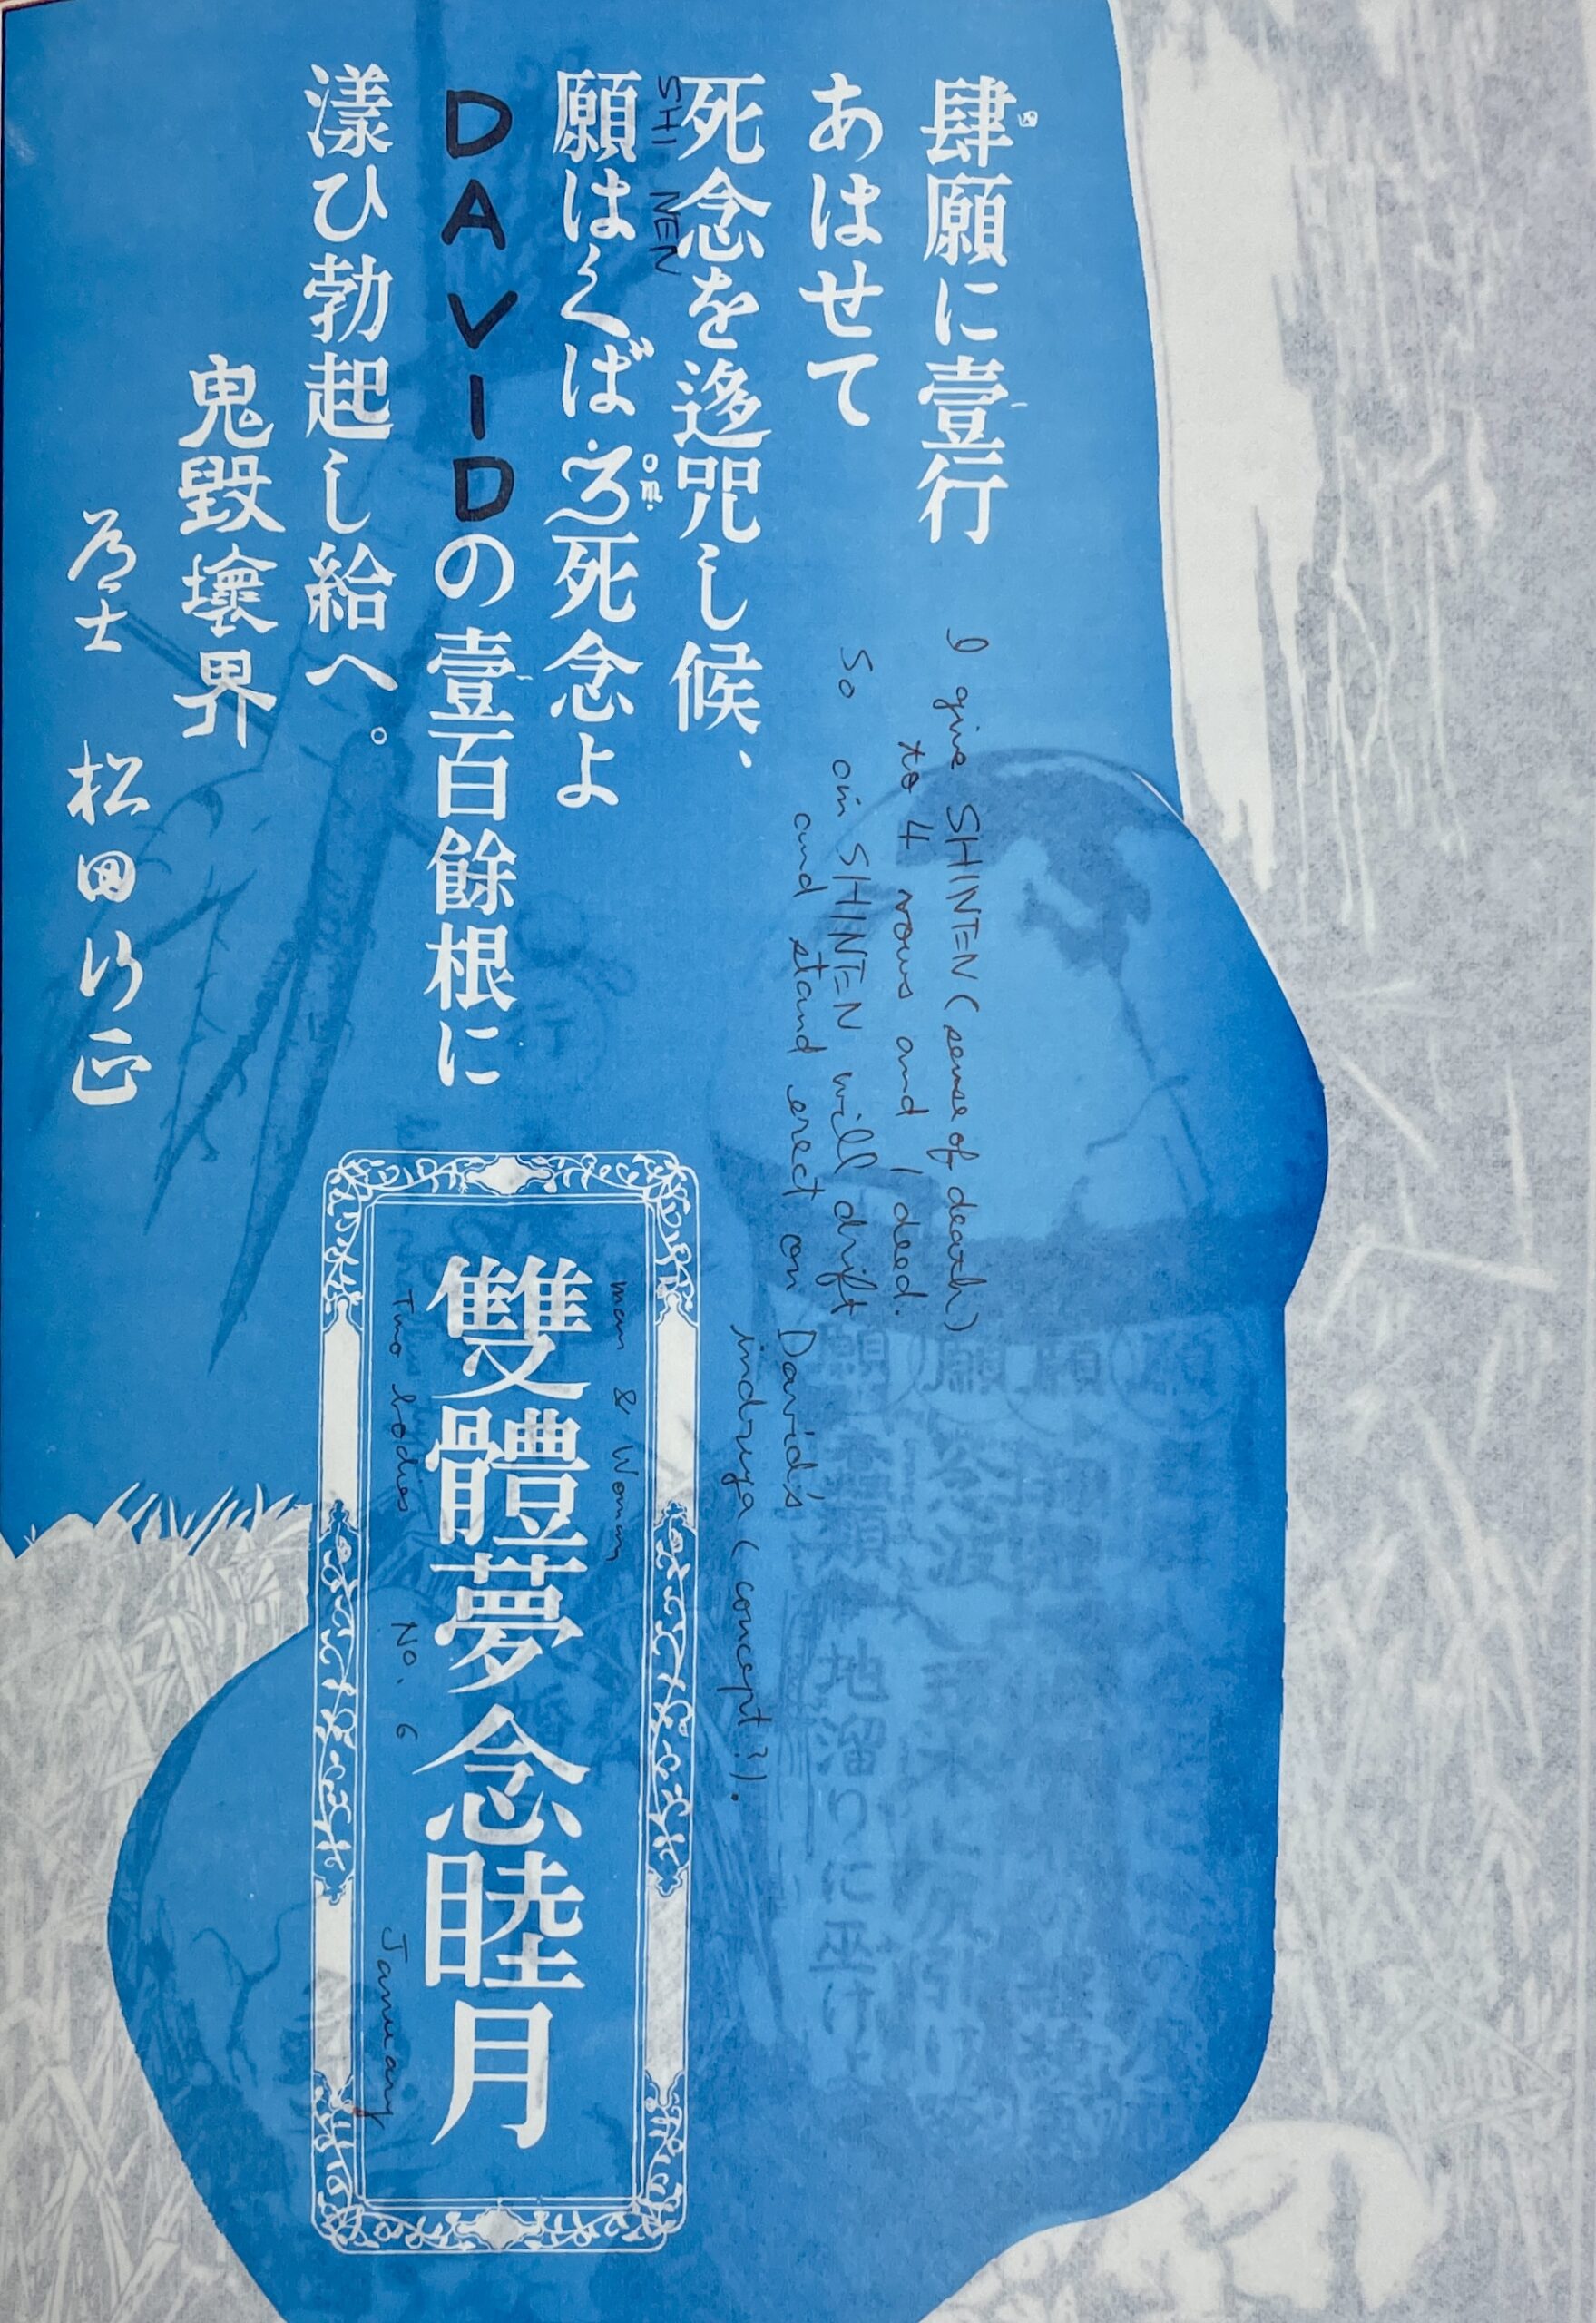 肆願に壹行
四
一
あはせて
死念を迻咒し候、
SHI NEN
願はくばॐ死念よ
om.
DAVIDの壹百餘根に
一
漾ひ勃起し給へ。
鬼毀壞界
松田
正
I give SHINEN (sense of death)
to 4 vows and 1 deed.
So om SHINEN will drift
and stand erect on David's
indruya (concept?).
man & Woman
雙體夢念睦月
Two bodies No. 6 January
願
願
願
地溜りに巫け